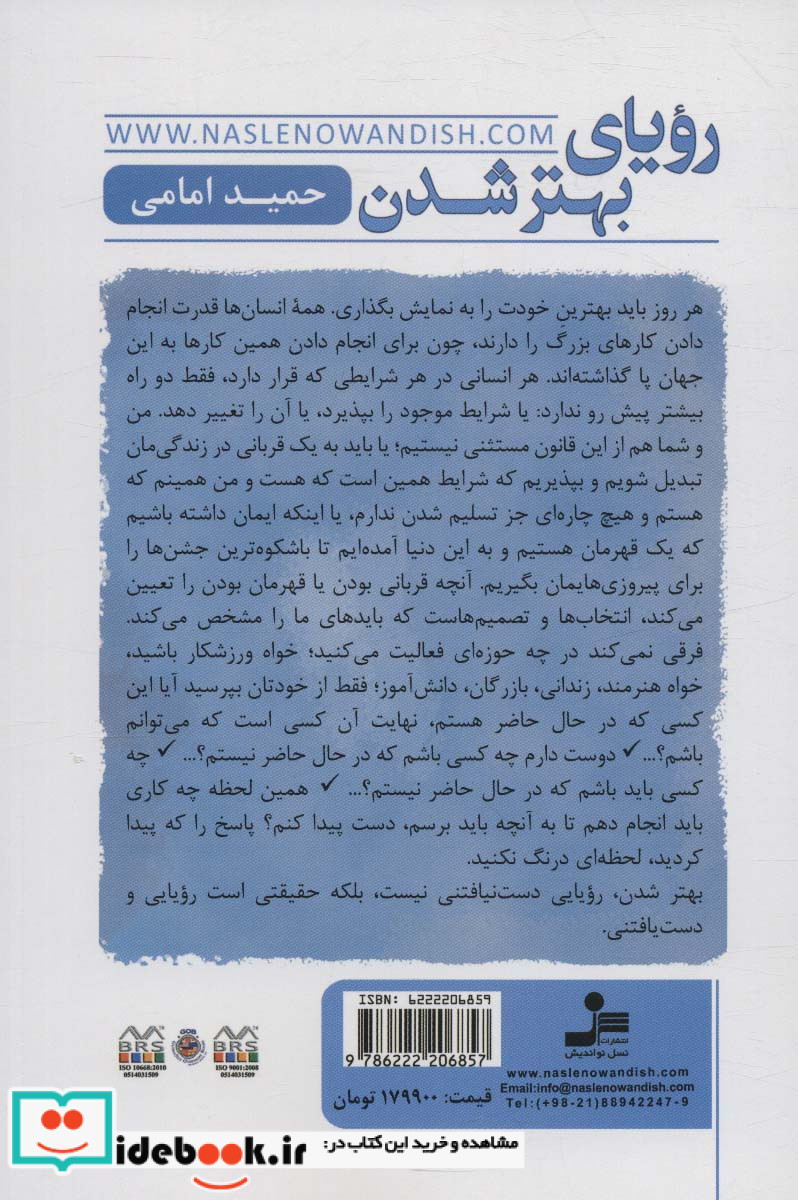 رؤیای
بهتر شدن
WWW.NASLENOWANDISH.COM
حمید امامی
هر روز باید بهترینِ خودت را به نمایش بگذاری. همهٔ انسان‌ها قدرت انجام
دادن کارهای بزرگ را دارند، چون برای انجام دادن همین کارها به این
جهان پا گذاشته‌اند. هر انسانی در هر شرایطی که قرار دارد، فقط دو راه
بیشتر پیش رو ندارد: یا شرایط موجود را بپذیرد، یا آن را تغییر دهد. من
و شما هم از این قانون مستثنی نیستیم؛ یا باید به یک قربانی در زندگی‌مان
تبدیل شویم و بپذیریم که شرایط همین است که هست و من همینم که
هستم و هیچ چاره‌ای جز تسلیم شدن ندارم، یا اینکه ایمان داشته باشیم
که یک قهرمان هستیم و به این دنیا آمده‌ایم تا باشکوه‌ترین جشن‌ها را
برای پیروزی‌هایمان بگیریم. آنچه قربانی بودن یا قهرمان بودن را تعیین
می‌کند، انتخاب‌ها و تصمیم‌هاست که بایدهای ما را مشخص می‌کند.
فرقی نمی‌کند در چه حوزه‌ای فعالیت می‌کنید؛ خواه ورزشکار باشید،
خواه هنرمند، زندانی، بازرگان، دانش‌آموز؛ فقط از خودتان بپرسید آیا این
کسی که در حال حاضر هستم، نهایت آن کسی است که می‌توانم
باشم؟... ✓ دوست دارم چه کسی باشم که در حال حاضر نیستم؟... ✓ چه
کسی باید باشم که در حال حاضر نیستم؟... ✓ همین لحظه چه کاری
باید انجام دهم تا به آنچه باید برسم، دست پیدا کنم؟ پاسخ را که پیدا
کردید، لحظه‌ای درنگ نکنید.
بهتر شدن، رؤیایی دست‌نیافتنی نیست، بلکه حقیقتی است رؤیایی و
دست‌یافتنی.
ISBN: 6222206859
9 786222 206857
قیمت: ۱۷۹۹۰۰ تومان
انتشارات
نسل نواندیش
www.naslenowandish.com
Email:info@naslenowandish.com
Tel:(+98-21)88942247-9
BRS
ISO 10668:2010
0514031509
GOB
BRS
ISO 9001:2008
0514031509
مشاهده و خرید این کتاب در:
idebook.ir